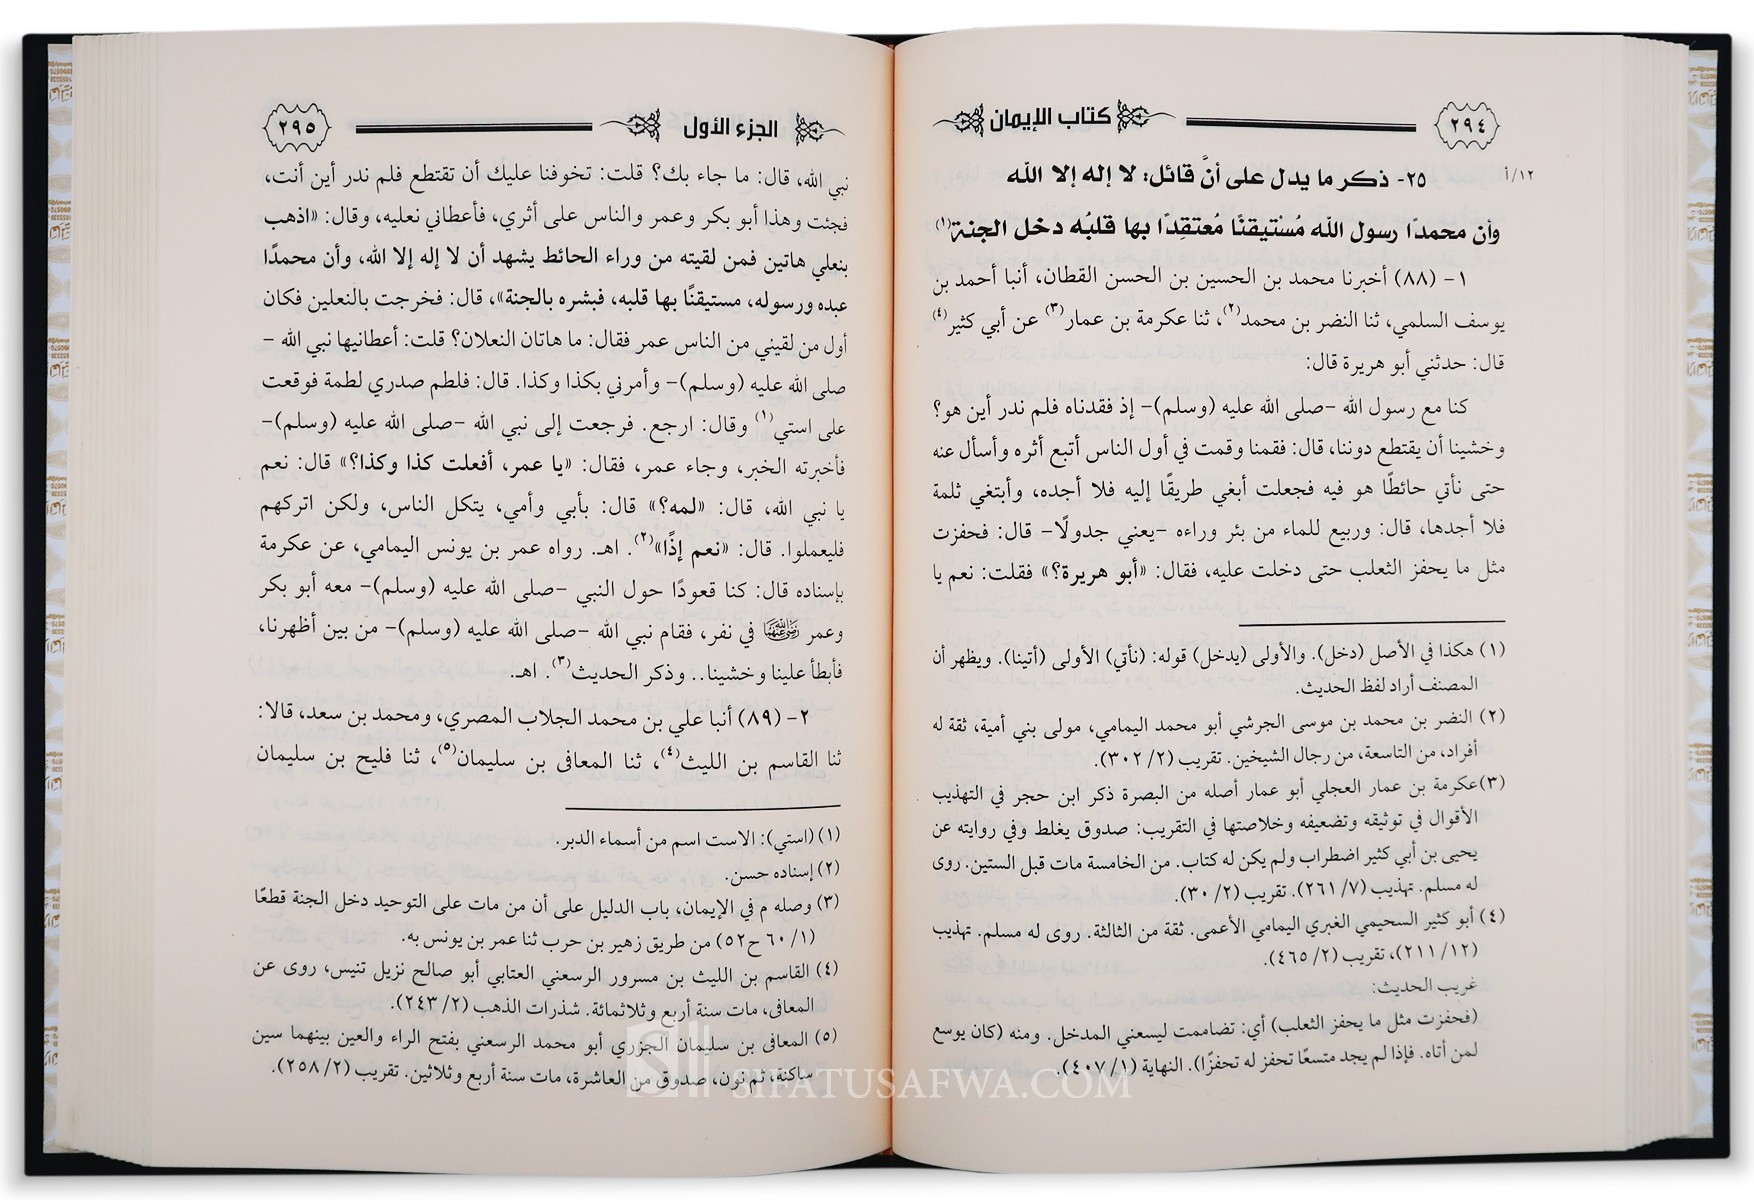 ٢٩٤
كتاب الإيمان
١٢/أ
٢٥- ذكر ما يدل على أنَّ قائل: لا إله إلا الله
وأن محمدًا رسول الله مُسْتيقنًا مُعتقِدًا بها قلبُه دخل الجنة(١)
١- (٨٨) أخبرنا محمد بن الحسين بن الحسن القطان، أنبا أحمد بن
يوسف السلمي، ثنا النضر بن محمد(٢)، ثنا عكرمة بن عمار(٣) عن أبي كثير(٤)
قال: حدثني أبو هريرة قال:
كنا مع رسول الله -صلى الله عليه (وسلم)- إذ فقدناه فلم ندر أين هو؟
وخشينا أن يقتطع دوننا، قال: فقمنا وقمت في أول الناس أتبع أثره وأسأل عنه
حتى نأتي حائطًا هو فيه فجعلت أبغي طريقًا إليه فلا أجده، وأبتغي ثلمة
فلا أجدها، قال: وربيع للماء من بئر وراءه -يعني جدولًا- قال: فحفزت
مثل ما يحفز الثعلب حتى دخلت عليه، فقال: «أبو هريرة؟» فقلت: نعم يا
(١) هكذا في الأصل (دخل). والأولى (يدخل) قوله: (نأتي) الأولى (أتينا). ويظهر أن
المصنف أراد لفظ الحديث.
(٢) النضر بن محمد بن موسى الجرشي أبو محمد اليمامي، مولى بني أمية، ثقة له
أفراد، من التاسعة، من رجال الشيخين. تقريب (٢/ ٣٠٢).
(٣)عكرمة بن عمار العجلي أبو عمار أصله من البصرة ذكر ابن حجر في التهذيب
الأقوال في توثيقه وتضعيفه وخلاصتها في التقريب: صدوق يغلط وفي روايته عن
يحيى بن أبي كثير اضطراب ولم يكن له كتاب. من الخامسة مات قبل الستين. روى
له مسلم. تهذيب (٧/ ٢٦١). تقريب (٢/ ٣٠).
(٤) أبو كثير السحيمي الغبري اليمامي الأعمى. ثقة من الثالثة. روى له مسلم. تهذيب
(١٢/ ٢١١)، تقريب (٢/ ٤٦٥).
غريب الحديث:
(فحفزت مثل ما يحفز الثعلب) أي: تضاممت ليسعني المدخل. ومنه (كان يوسع
لمن أتاه. فإذا لم يجد متسعًا تحفز له تحفزًا). النهاية (١/ ٤٠٧).
الجزء الأول
٢٩٥
نبي الله، قال: ما جاء بك؟ قلت: تخوفنا عليك أن تقتطع فلم ندر أين أنت،
فجئت وهذا أبو بكر وعمر والناس على أثري، فأعطاني نعليه، وقال: «اذهب
بنعلي هاتين فمن لقيته من وراء الحائط يشهد أن لا إله إلا الله، وأن محمدًا
عبده ورسوله، مستيقنًا بها قلبه، فبشره بالجنة»، قال: فخرجت بالنعلين فكان
أول من لقيني من الناس عمر فقال: ما هاتان النعلان؟ قلت: أعطانيها نبي الله -
صلى الله عليه (وسلم)- وأمرني بكذا وكذا. قال: فلطم صدري لطمة فوقعت
على استي(١) وقال: ارجع. فرجعت إلى نبي الله -صلى الله عليه (وسلم)-
فأخبرته الخبر، وجاء عمر، فقال: «يا عمر، أفعلت كذا وكذا؟» قال: نعم
يا نبي الله، قال: «لمه؟» قال: بأبي وأمي، يتكل الناس، ولكن اتركهم
فليعملوا. قال: «نعم إذًا»(٢). اهـ. رواه عمر بن يونس اليمامي، عن عكرمة
بإسناده قال: كنا قعودًا حول النبي -صلى الله عليه (وسلم)- معه أبو بكر
وعمر رضي الله عنهما في نفر، فقام نبي الله -صلى الله عليه (وسلم)- من بين أظهرنا،
فأبطأ علينا وخشينا.. وذكر الحديث(٣). اهـ.
٢- (٨٩) أنبا علي بن محمد الجلاب المصري، ومحمد بن سعد، قالا:
ثنا القاسم بن الليث(٤)، ثنا المعافى بن سليمان(٥)، ثنا فليح بن سليمان
(١) (استي): الاست اسم من أسماء الدبر.
(٢) إسناده حسن.
(٣) وصله م في الإيمان، باب الدليل على أن من مات على التوحيد دخل الجنة قطعًا
(١/ ٦٠ ح٥٢) من طريق زهير بن حرب ثنا عمر بن يونس به.
(٤) القاسم بن الليث بن مسرور الرسعني العتابي أبو صالح نزيل تنيس، روى عن
المعافى، مات سنة أربع وثلاثمائة. شذرات الذهب (٢/ ٢٤٣).
(٥) المعافى بن سليمان الجزري أبو محمد الرسعني بفتح الراء والعين بينهما سين
ساكنة، ثم نون، صدوق من العاشرة، مات سنة أربع وثلاثين. تقريب (٢/ ٢٥٨).
SIFATUSAFWA.COM